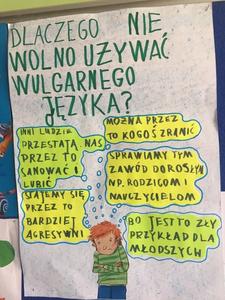 DLACZEGO NIE
WOLNO UŻYWAĆ
WULGARNEGO
JĘZYKA?
INNI LUDZIE
PRZESTATĄ NAS
PRZEZ TO
SANOWAĆ I
LUBIĆ
MOŻNA PRZEZ
TO KOGOŚ ZRANIĆ
SPRAWIAMY TYM
ZAWÓD DOROSŁYM
NP. RODZICOM I
NAUCZYCIELOM
STAJEMY SIĘ
PRZEZ TO
BARDZIEJ
AGRESYWNI
BO JEST TO ZŁY
PRZYKŁAD DLA
MŁODSZYCH